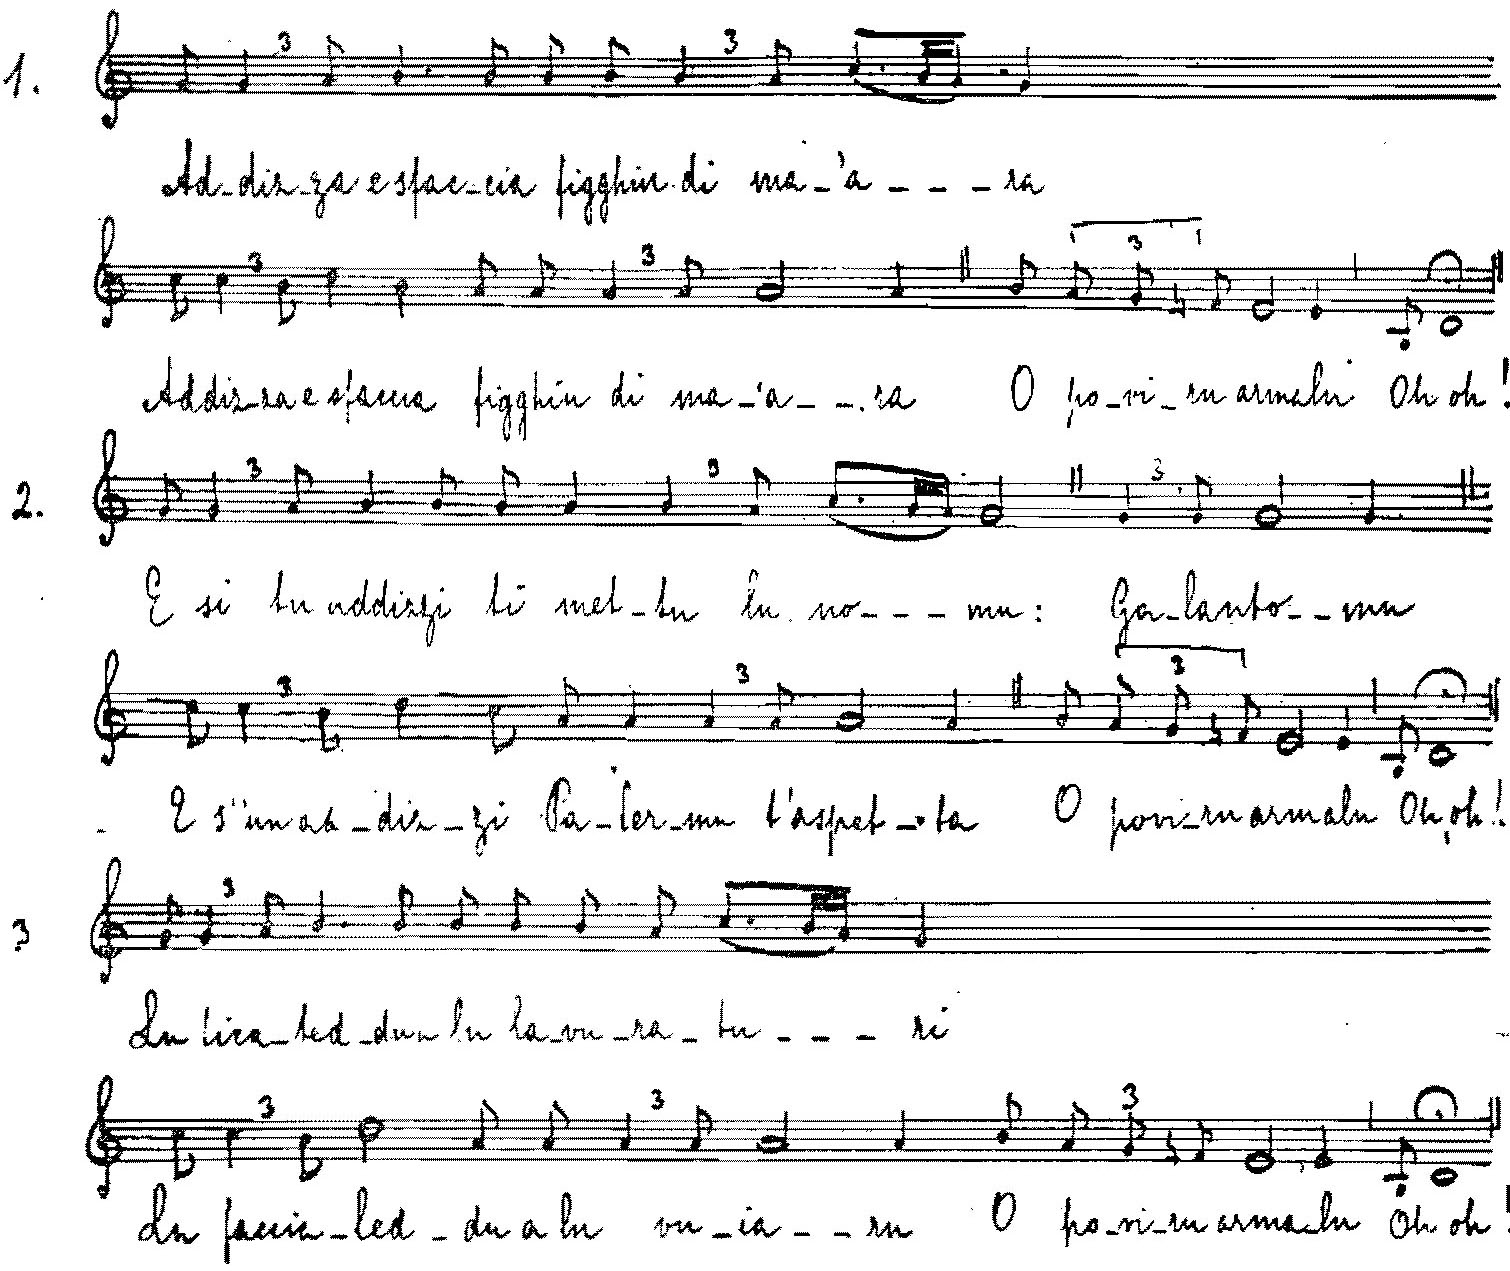 1.
Ad-diz-za e sfac-cia figghiu di ma-'a---ra
Addiz-za e sfaccia figghiu di ma-'a--ra O po-vi-ru armalu Oh oh!
2.
E si tu addizzi ti met-tu lu no---mu: Ga-lanto--mu
E s''un ad-diz-zi Pa-ler-mu t'aspet-ta O povi-ru armalu Oh, oh!
3
Lu lica-ted-du a lu la-vu-ra-tu---ri
Lu faccia-led-du a lu vu-ia--ru O po-vi-ru arma-lu Oh oh!